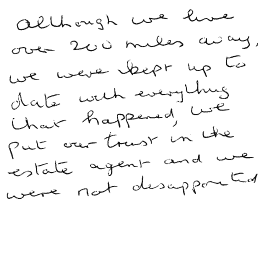 Although we live
over 200 miles away,
we were kept up to
date with everything
that happened, we
put our trust in the
estate agent and we
were not disappointed